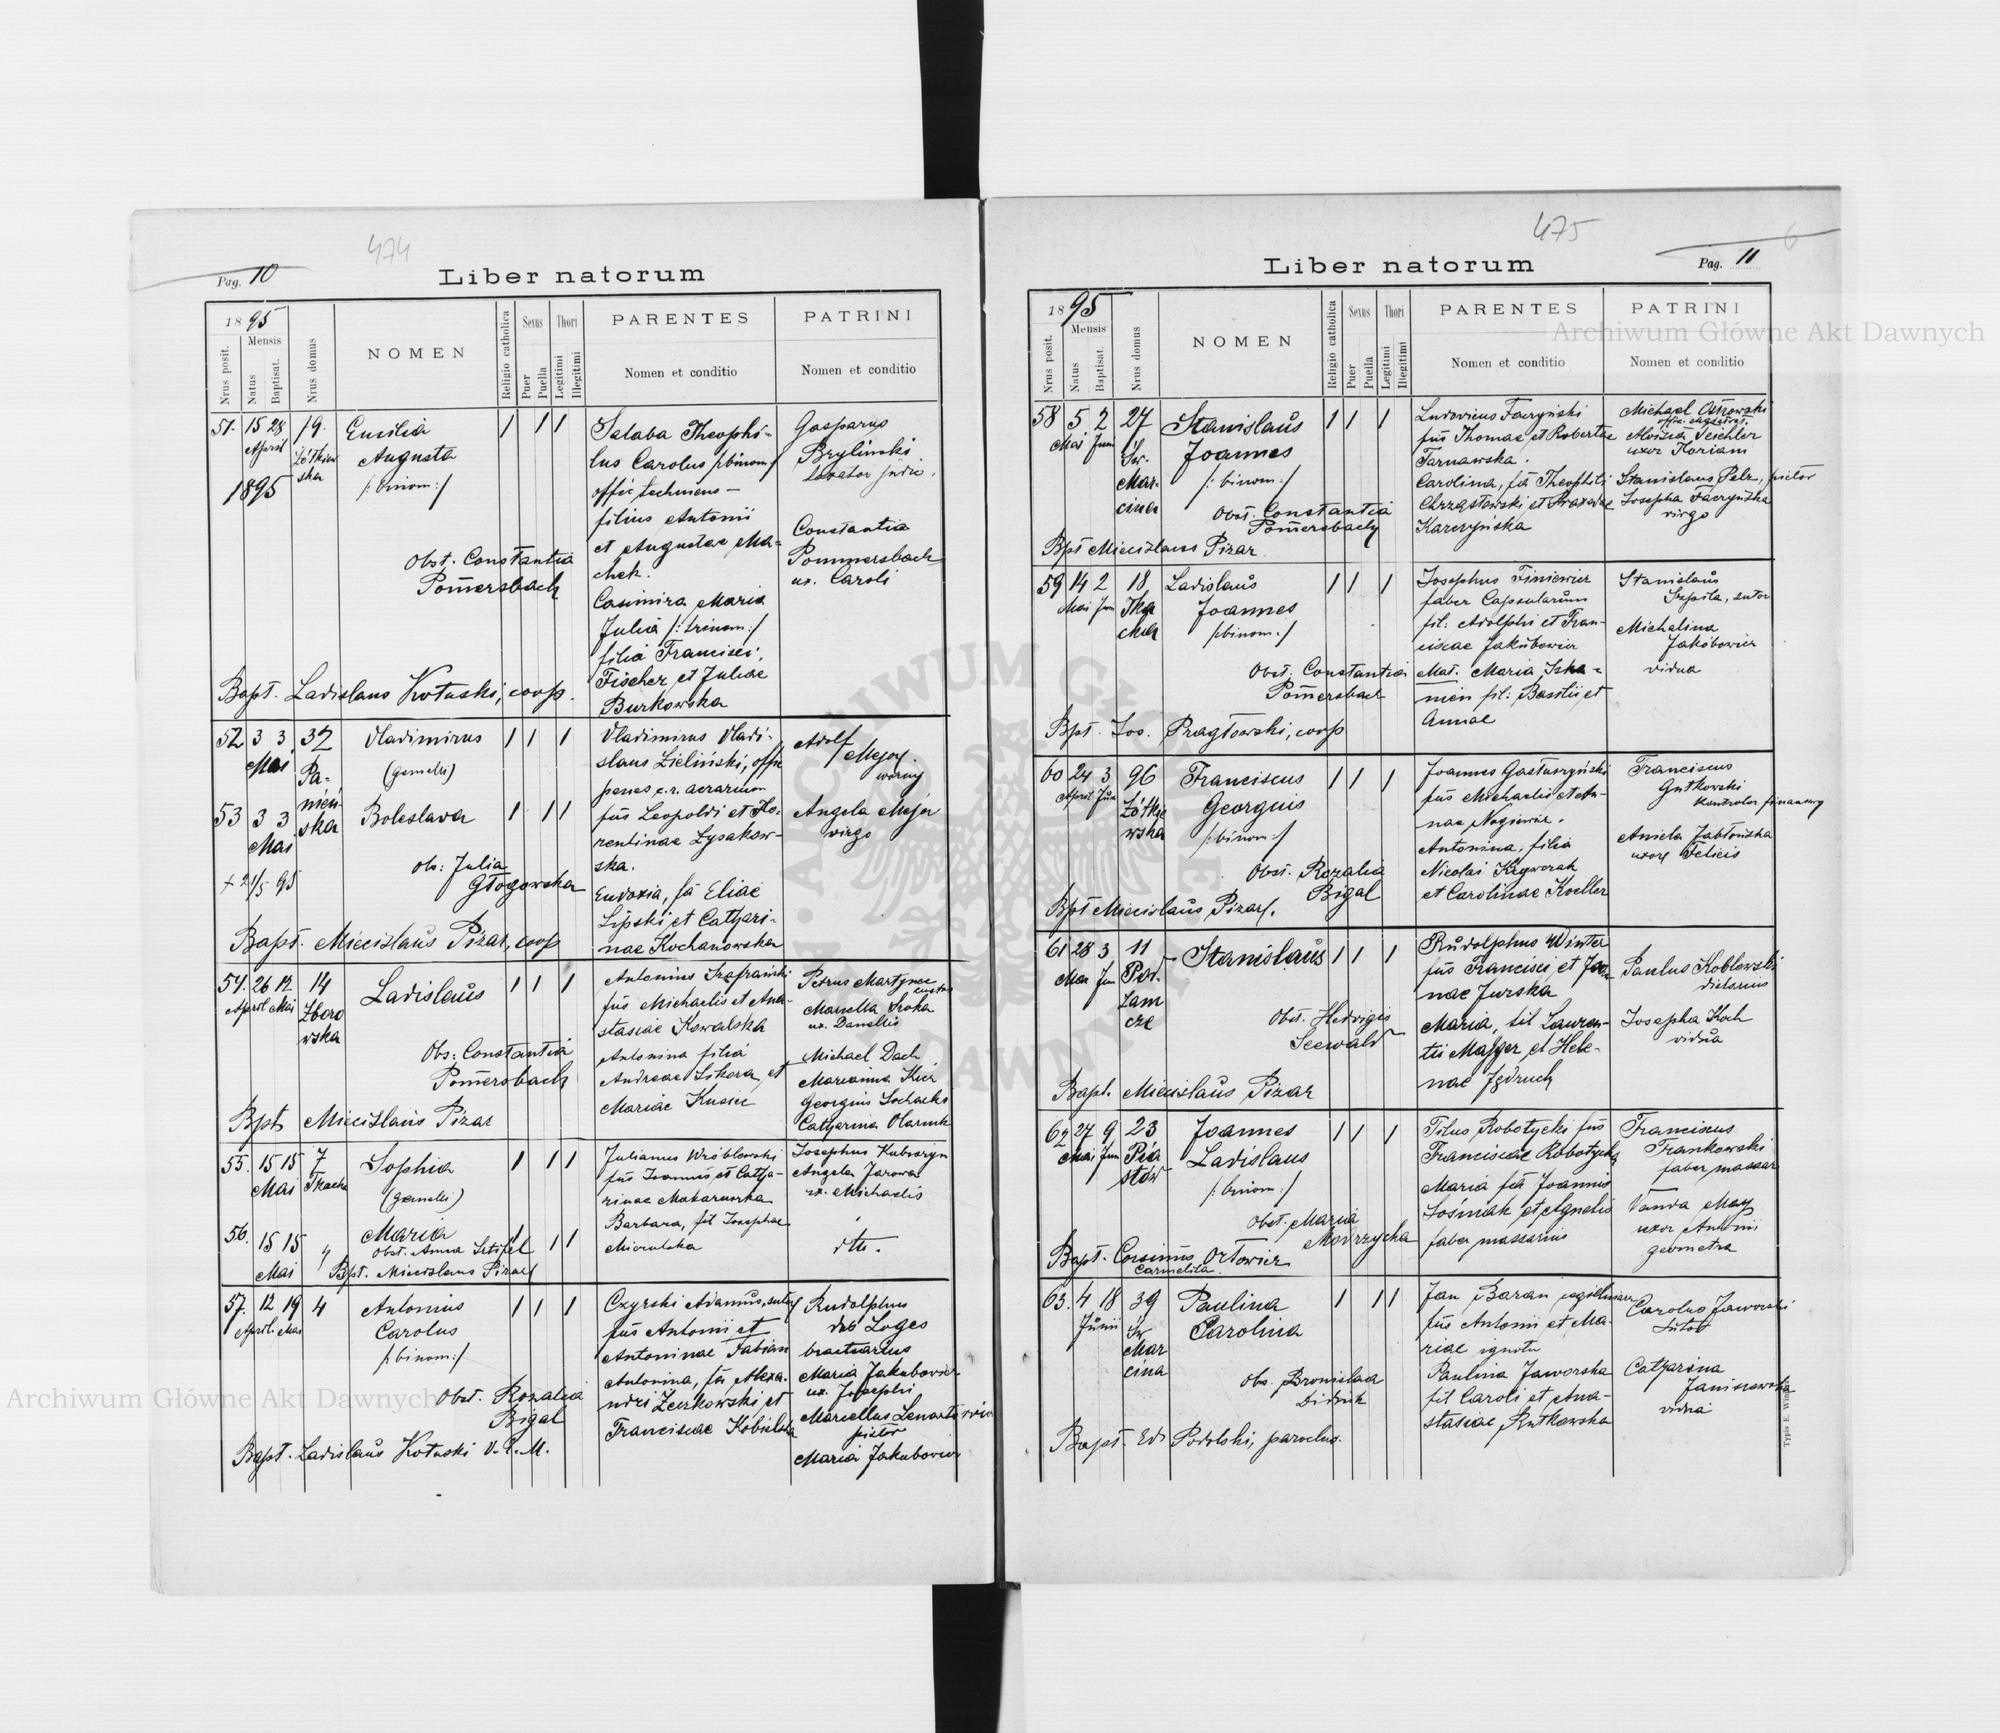 474
Pag. 10
Liber natorum
1895
Mensis
Nrus posit.
Natus
Baptisat.
Nrus domus
NOMEN
Religio catholica
Sexus
Puer
Puella
Thori
Legitimi
Illegitimi
PARENTES
Nomen et conditio
PATRINI
Nomen et conditio
51. 15 28 19.
April
Żółkiew
ska
1895
Emilia
Augusta
/: binom:/
Obst. Constantia
Pom̄ersbach
1 1 1
Salaba Theophi-
lus Carolus /:binom:/
offic technicus –
filius Antonii
et Augustae Ma-
chek.
Casimira Maria
Julia /: trinom:/
filia Francisci
Fischer et Juliae
Burkowska
Gasparus
Brylinski
Constantia
Pommersbach
ux. Caroli
Bapt. Ladislaus Kotuski, coop.
52 3 3 32
Mai
Pa-
nień
ska
Vladimirus
(gemelli)
1 1 1
53 3 3
Mai
Boleslava
1 1 1
+ 21/5 95
Ob: Julia
Głogowska
Vladimirus Vladi-
slaus Zieliński, offic
penes c.r. aerarium
fius Leopoldi et Flo-
rentinae Łysakow-
ska.
Eudoxia, fa Eliae
Lipski et Cathari-
nae Kochanowska
Adolf
Mejer
woźny
Angela Mejer
virgo
Bapt. Miecislaus Pizar, coop
54. 26 12 14
April Mai
Zboro
wska
Ladislaus
Obs: Constantia
Pom̄ersbach
1 1 1
Antonius Szafrański
fius Michaelis et Ana-
stasiae Kowalska
Antonina filia
Andreae Sikora et
Mariae Kusic
Petrus Martynec
custos
Marcella Sroka
ux. Danielis
Michael Dach
Marianna Kicz
Georgius Sochacki
Catharina Olarnik
Bpt Miecislaus Pizar
55. 15 15 7
Mai Tkacka
Sophia
(gemelli)
1 1 1
Julianus Wróblewski
fius Joannis et Catha-
rinae Makarowska
Barbara, fil Josephae
Josephus Kubiszyn
Angela Jarowa
ux. Michaelis
56. 15 15 "
Mai
Maria
Obst. Anna Sztifel
1 1 1
dtt.
Bpt. Miecislaus Pizar
57. 12 19 4
Aprili Mai
Antonius
Carolus
/:binom:/
Obst. Rozalia
Bigal
1 1 1
Czyrski Adamus, sutor
fius Antonii et
Antoninae Fabian
Antonina, fa Alexa-
ndri Żurkowski et
Franciscae Kobielska
Rudolphus
des Loges
bractearius
Maria Jakubowicz
ux. Josephi
Marcellus Lenartowicz
pictor
Maria Jakubowicz
Bapt. Ladislaus Kotuski V.C.M.
475
6
Liber natorum
Pag. 11
1895
Mensis
Nrus posit.
Natus
Baptisat.
Nrus domus
NOMEN
Religio catholica
Sexus
Puer
Puella
Thori
Legitimi
Illegitimi
PARENTES
Nomen et conditio
PATRINI
Nomen et conditio
58 5 2 27
Mai Juni
Św.
Mar-
cina
Stanislaus
Joannes
/: binom:/
Obst. Constantia
Pom̄ersbach
1 1 1
Ludovicus Faczyński
fius Thomae et Robertae
Tarnawska.
Carolina, fa Theophili
Chrząstowski et Praxedae
Karczyńska
Michael Ostrowski
offic. magistrat.
Aloisia Teichler
uxor Floriani
Stanislaus Pelz, pictor
Josepha Faczyńska
virgo
Bpt Miecislaus Pizar
59 14 2 18
Mai Juni
Tka
cka
Ladislaus
Joannes
/:binom:/
Obst. Constantia
Pom̄ersbach
1 1 1
Josephus Finiewicz
faber Capsularum
fil: Adolphi et Fran-
ciscae Jakubowicz
Mat. Maria Iska-
nien fil: Basilii et
Annae
Stanislaus
Szpila, sutor
Michalina
Jakóbowicz
vidua
Bpt. Jos. Pragłowski, coop
60 24 3 96
April Jun
Żółkie
wska
Franciscus
Georgius
/: binom:/
Obst. Rozalia
Bigal
1 1 1
Joannes Gastuszyński
fius Michaelis et An-
nae Nogiewicz.
Antonina, filia
Nicolai Krzyworak
et Carolinae Koeller
Franciscus
Gutkowski
kontrolor finansowy
Aniela Jabłońska
uxor Felicis
Bpt Miecislaus Pizar.
61 28 3 11
Mai Jun
Pod-
zam
cze
Stanislaus
Obst. Hedvigis
Seewald
1 1 1
Rudolphus Winter
fius Francisci et Joan-
nae Jurska
Maria, fil Lauren-
tii Majger et Hele-
nae Jędruch
Paulus Koblowski
dietarius
Josepha Koch
vidua
Bapt. Miecislaus Pizar
62 27 9 23
Mai Jun
Pia
stów
Joannes
Ladislaus
/: binom:/
Obst. Maria
Modrzycka
1 1 1
Titus Robotycki fius
Franciscae Robotycka
Maria fa Joannis
Sośniak et Agnetis
faber massarius
Franciscus
Frankowski
faber massar
Vanda May
uxor Antonii
geometra
Bapt. Cassianus Ortowicz
Carmelita
63. 4 18 39
Junii
Św
Mar
cina
Paulina
Carolina
Obs. Bronislaa
Didiuk
1 1 1
Jan Baran
fius Antonii et Ma-
riae ignota
Paulina Jaworska
fil Caroli et Ana-
stasiae Rutkowska
Carolus Jaworski
Sutor
Catharina
Janiszewska
vidua
Bapt. Ed. Podolski, parochus.
Typis E. Win
Archiwum Główne Akt Dawnych
Archiwum Główne Akt Dawnych